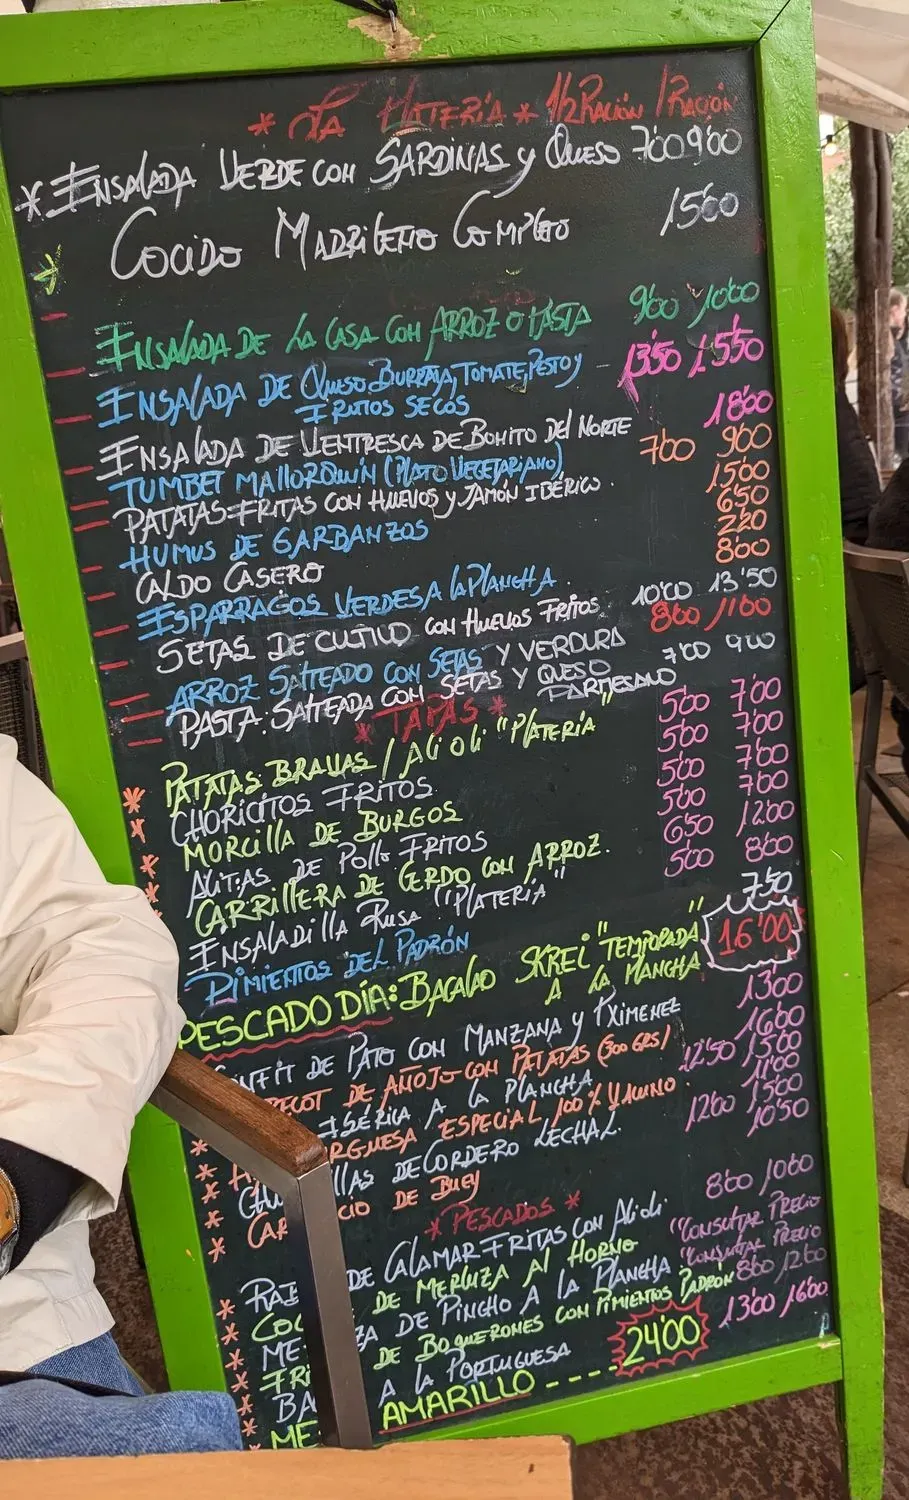 * LA PLATERÍA * 1/2 RACIÓN / RACIÓN
* ENSALADA VERDE CON SARDINAS Y QUESO 7'00 9'00
COCIDO MADRILEÑO COMPLETO 15'00
ENSALADA DE LA CASA CON ARROZ O PASTA 9'00 10'00
ENSALADA DE QUESO BURRATA, TOMATE, PESTO Y 13'50 15'50
FRUTOS SECOS
ENSALADA DE VENTRESCA DE BONITO DEL NORTE 18'00
TUMBET MALLORQUÍN (PLATO VEGETARIANO) 7'00 9'00
PATATAS FRITAS CON HUEVOS Y JAMÓN IBÉRICO. 15'00
HUMUS DE GARBANZOS 6'50
CALDO CASERO 2'20
ESPARRAGOS VERDES A LA PLANCHA. 8'00
SETAS DE CULTIVO CON HUEVOS FRITOS. 10'00 13'50
ARROZ SALTEADO CON SETAS Y VERDURA 8'00 11'00
PASTA SALTEADA CON SETAS Y QUESO 7'00 9'00
PARMESANO
* TAPAS *
* PATATAS BRAVAS / ALI OLI "PLATERÍA" 5'00 7'00
* CHORICITOS FRITOS. 5'00 7'00
* MORCILLA DE BURGOS 5'00 7'00
* ALITAS DE POLLO FRITOS 5'00 7'00
CARRILLERA DE CERDO CON ARROZ. 6'50 12'00
ENSALADILLA RUSA "PLATERÍA" 5'00 8'00
PIMIENTOS DEL PADRÓN 7'50
PESCADO DÍA: BACALAO SKREI "TEMPORADA" 16'00
A LA PLANCHA
CONFIT DE PATO CON MANZANA Y P.XIMENEZ 13'00
DE AÑOJO CON PATATAS (300 GRS) 16'00
* IBÉRICA A LA PLANCHA 12'50 15'00
* ESPECIAL 100% VACUNO. 11'00
* DE CORDERO LECHAL. 12'00 15'00
* CIO DE BUEY 10'50
* PESCADOS *
* DE CALAMAR FRITAS CON ALIOLI. 8'00 / 10'00
* DE MERLUZA AL HORNO "CONSULTAR PRECIO
* DE PINCHO A LA PLANCHA "CONSULTAR PRECIO
* DE BOQUERONES CON PIMIENTOS PADRÓN 8'00 / 12'00
* BA A LA PORTUGUESA 13'00 16'00
* ME AMARILLO ---- 24'00